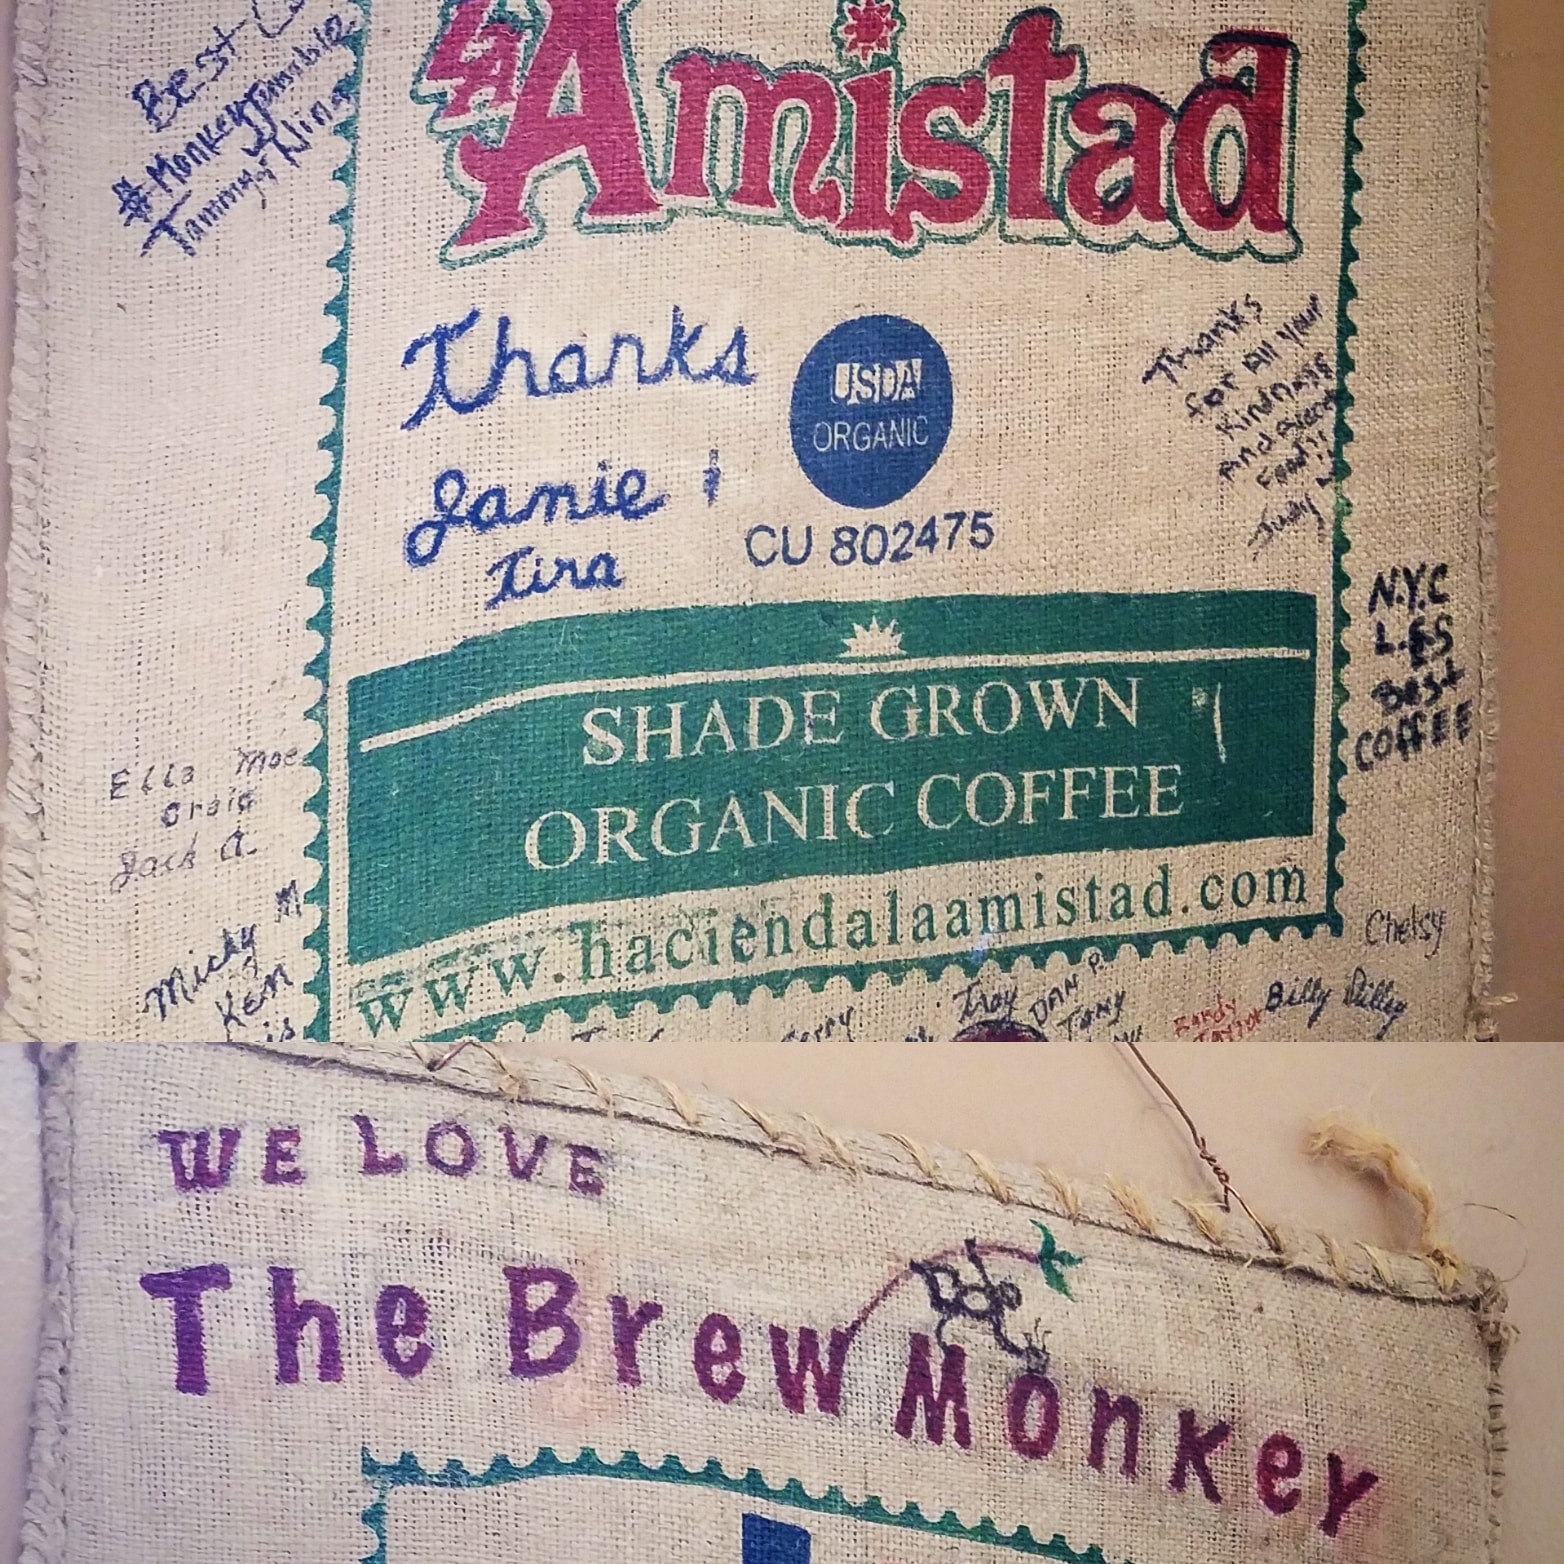 Best
#Monkey
Tammy
La
Amistad
Thanks
Jamie &
Kira
USDA
ORGANIC
CU 802475
Thanks
for all your
Kindness
And
food!!
Judy
N.Y.C
L.E.S
Best
COFFEE
SHADE GROWN
ORGANIC COFFEE
www.haciendalaamistad.com
Ella Moe
Craig
Jack A.
Micky M
Ken
is
Chelsy
Troy
DAN P.
Tony
Randy
Taylor
Billy Dilley
WE LOVE
The Brew Monkey